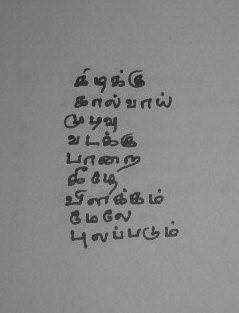 கிழக்கு
கால்வாய்
முடிவு
வடக்கு
பாறை
கீழே
விளக்கம்
மேலே
புலப்படும்